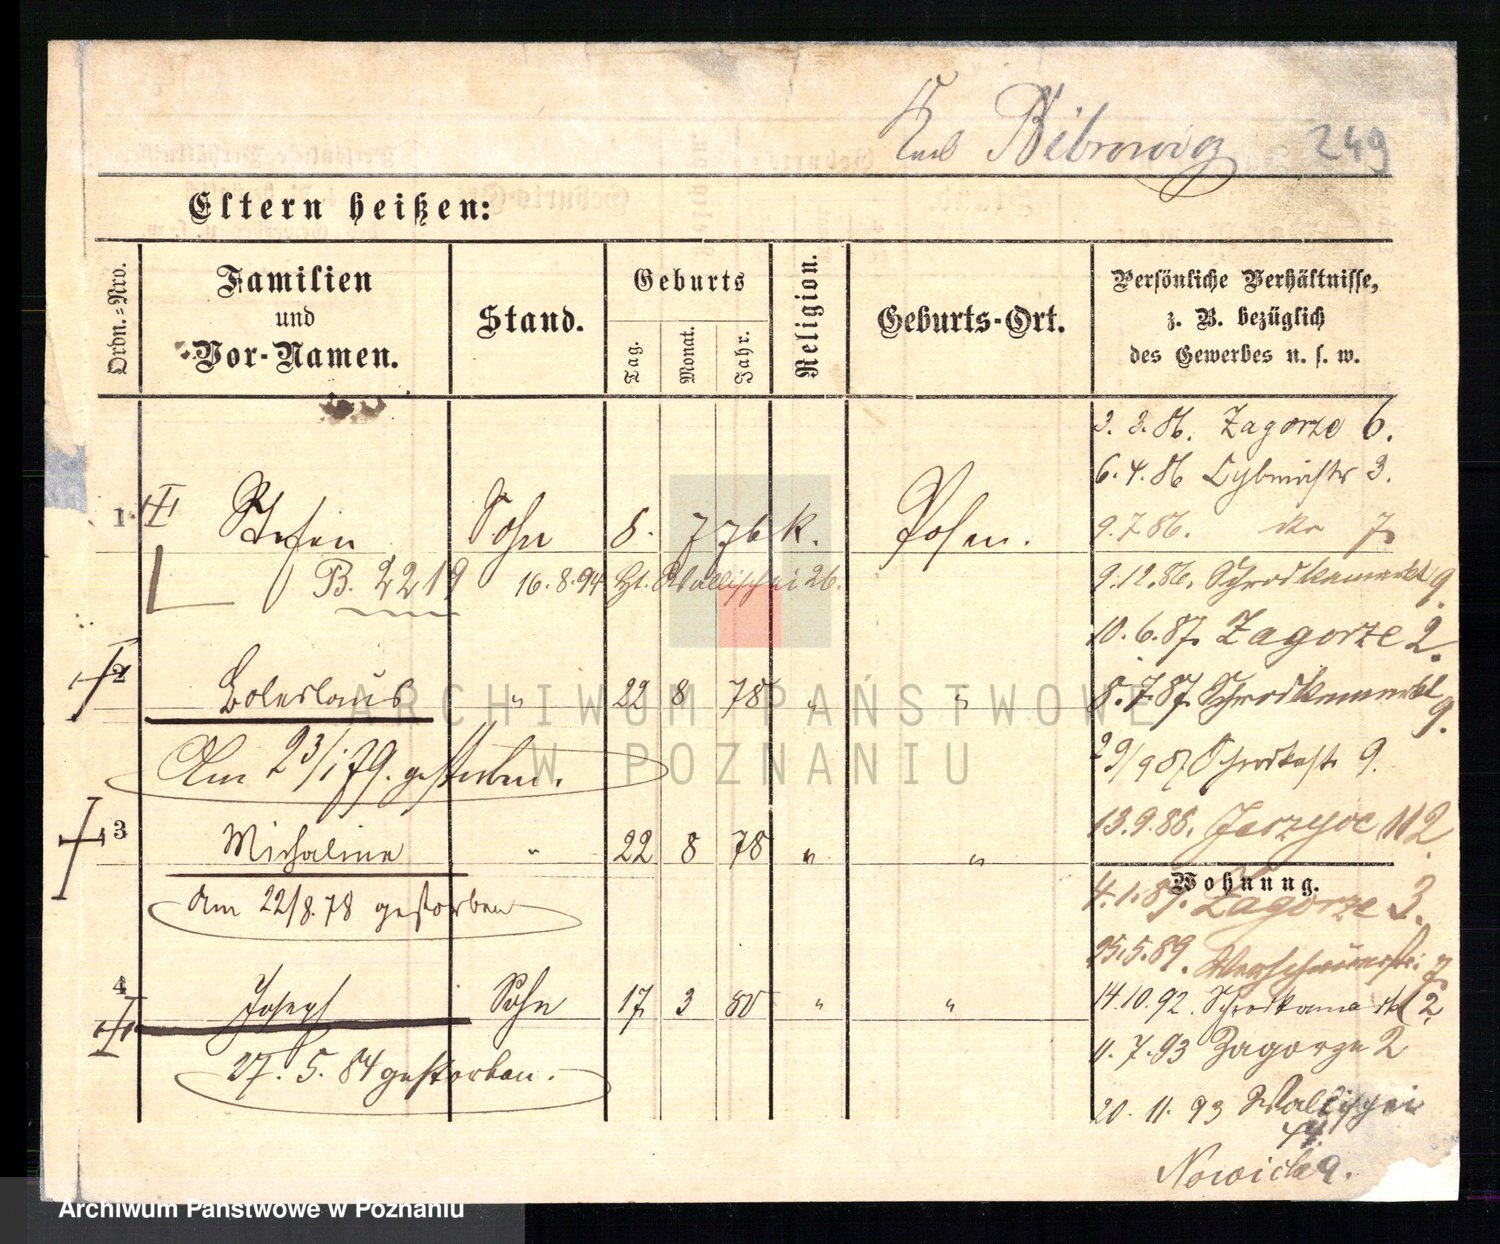 Karl Bibrowicz 249
Eltern heißen:
Ordn.-Nro.
Familien
und
Vor-Namen.
Stand.
Geburts
Tag.
Monat.
Jahr.
Religion.
Geburts-Ort.
Persönliche Verhältnisse,
z. B. bezüglich
des Gewerbes u. s. w.
1 Stefan Sohn 8. 7 76 k. Posen.
B. 2219 16.8.94 Wallischei 26.
2 Boleslaus " 22 8 78 " "
Am 23/1 79. gestorben.
3 Michaline " 22 8 78 " "
Am 22/8. 78 gestorben
4 Joseph Sohn 17 3 80 " "
27. 5. 84 gestorben.
3. 3. 86. Zagorze 6.
6. 4. 86 3.
9. 7. 86. 7
9.12.86. Schrodkamarkt 9.
10. 6. 87. Zagorze 2.
8. 7. 87. Schrodkamarkt 9.
29/9 87. 9.
13. 9. 88. 112
Wohnung.
4. 1. 89. Zagorze 3.
25. 5. 89. 7
14. 10. 92. Schrodkamarkt 2
11. 7. 93 Zagorze 2
20. 11. 93 Wallischei
Nowicka.
ARCHIWUM PAŃSTWOWE
W POZNANIU
Archiwum Państwowe w Poznaniu